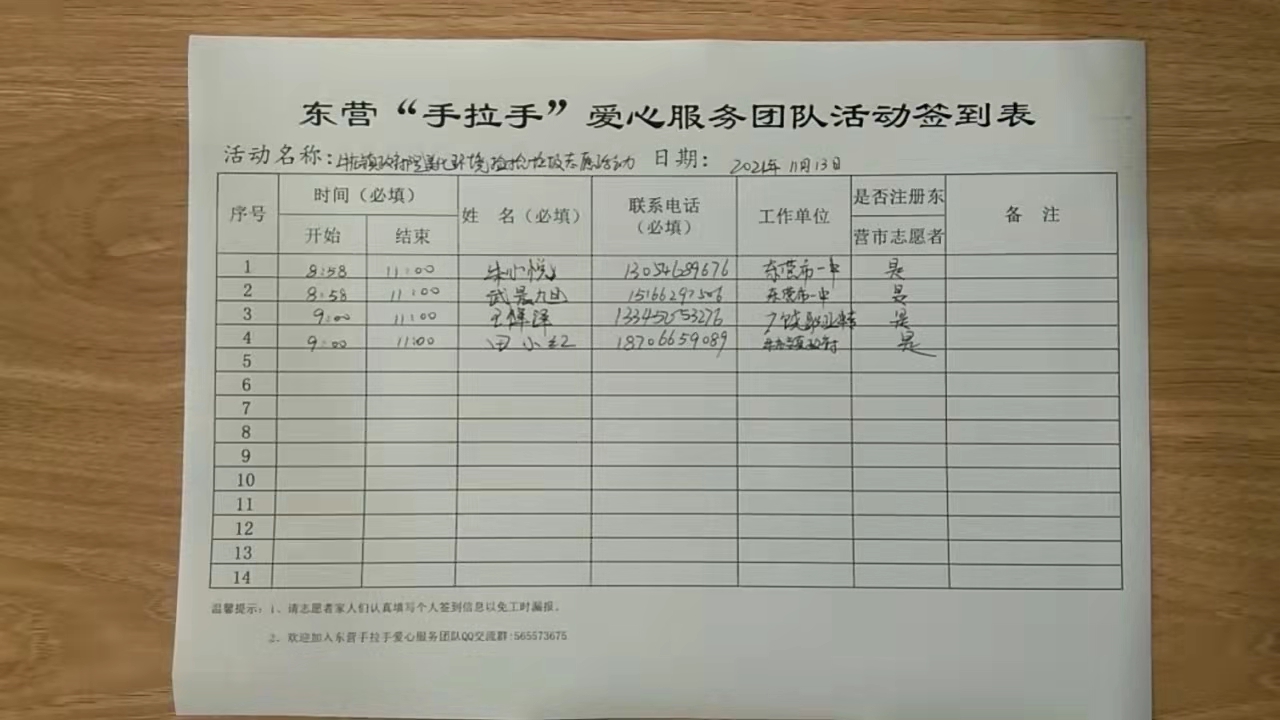 东营“手拉手”爱心服务团队活动签到表
活动名称： 镇政府 美化环境 捡拾垃圾志愿活动 日期： 2021年11月13日
序号 时间（必填） 姓 名（必填） 联系电话（必填） 工作单位 是否注册东营市志愿者 备 注
开始 结束
1 8:58 11:00 朱小悦 13054689676 东营市一中 是
2 8:58 11:00 武景旭 15166297506 东营市一中 是
3 9:00 11:00 王 泽 是
4 9:00 11:00 田小红 18706659089 镇政府 是
5
6
7
8
9
10
11
12
13
14
温馨提示：1、请志愿者家人们认真填写个人签到信息以免工时漏报。
2．欢迎加入东营手拉手爱心服务团队QQ交流群:565573675